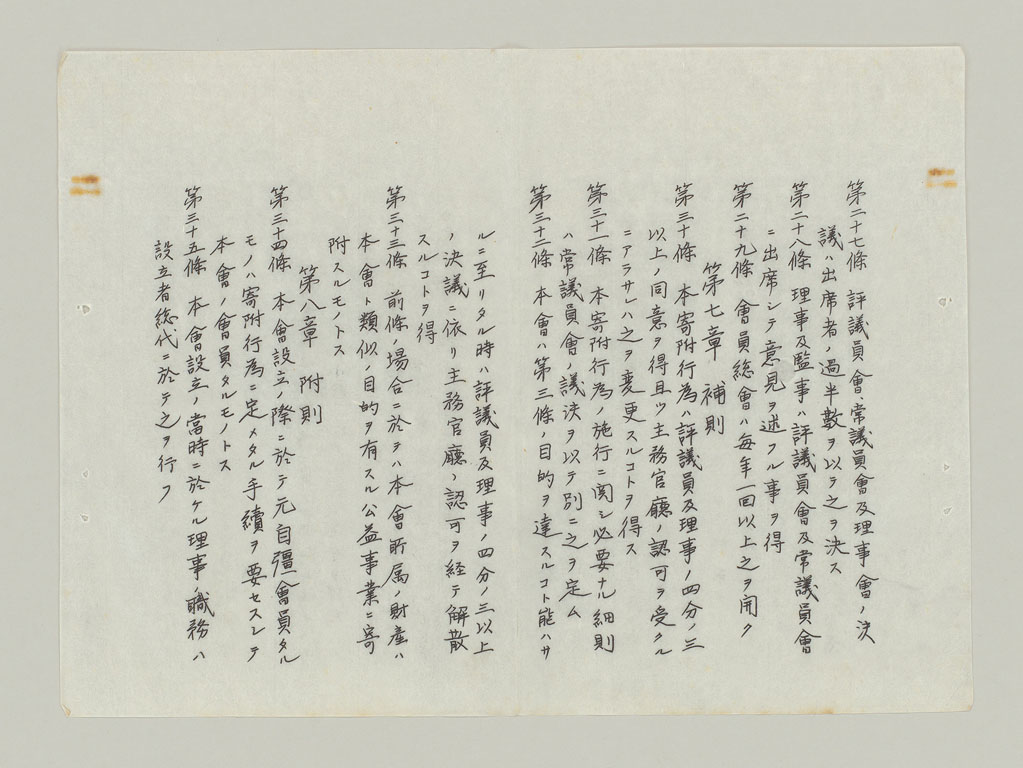 第二十七條 評議員會、常議員會及理事會ノ決
議ハ出席者ノ過半數ヲ以テ之ヲ決ス
第二十八條 理事及監事ハ評議員會及常議員會
ニ出席シテ意見ヲ述フル事ヲ得
第二十九條 會員総會ハ每年一回以上之ヲ開ク
第七章 補則
第三十條 本寄附行為ハ評議員及理事ノ四分ノ三
以上ノ同意ヲ得且ツ主務官廳ノ認可ヲ受クル
ニアラサレハ之ヲ変更スルコトヲ得ス
第三十一條 本寄附行為ノ施行ニ関シ必要ナル細則
ハ常議員會ノ議決ヲ以テ別ニ之ヲ定ム
第三十二條 本會ハ第三條ノ目的ヲ達スルコト能ハサ
ルニ至リタル時ハ評議員及理事ノ四分ノ三以上
ノ決議ニ依リ主務官廳ノ認可ヲ経テ解散
スルコトヲ得
第三十三條 前條ノ場合ニ於テハ本會所属ノ財産ハ
本會ト類似ノ目的ヲ有スル公益事業ニ寄
附スルモノトス
第八章 附則
第三十四條 本會設立ノ際ニ於テ元自彊會員タル
モノハ寄附行為ニ定メタル手續ヲ要セスシテ
本會ノ會員タルモノトス
第三十五條 本會設立ノ當時ニ於ケル理事ノ職務ハ
設立者総代ニ於テ之ヲ行フ